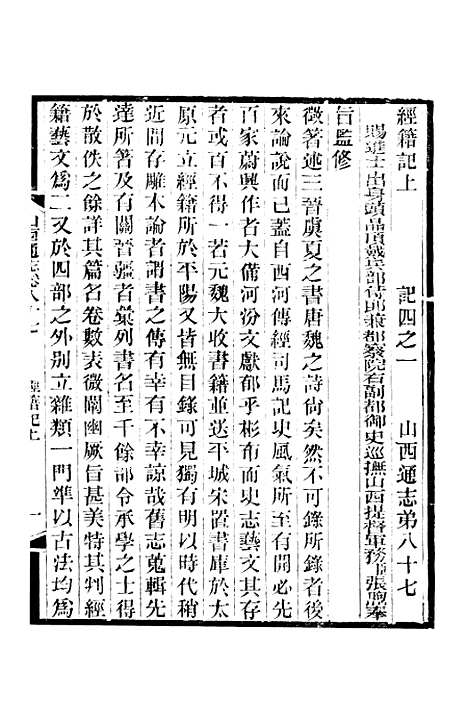 經籍記上　記四之一　山西通志弟八十七
賜進士出身頭品頂戴兵部侍郎兼都察院右副都御史巡撫山西提督軍務臣張煦奉
旨監修
徵著述三晉虞夏之書唐魏之詩尙矣然不可錄所錄者後
來論說而已蓋自西河傳經司馬記史風氣所至有開必先
百家蔚興作者大備河汾文獻郁乎彬布而史志藝文其存
者或百不得一若元魏大收書籍並送平城宋置書庫於太
原元立經籍所於平陽又皆無目錄可見獨有明以時代稍
近閒存雕本論者謂書之傳有幸不幸諒哉舊志蒐輯先
逹所著及有關晉疆者彙列書名至千餘部令承學之士得
於散佚之餘詳其篇名卷數表微闡幽厥恉甚美特其判經
籍藝文爲二又於四部之外別立雜類一門準以古法均爲
山西通志卷八十七　經籍記上　一